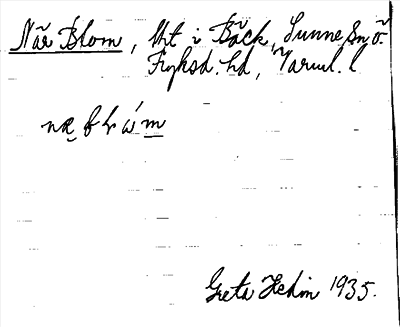 När Blom, tht i Bäck, Sunne sn Ö.
Fryksd. hd, Värml. l
Greta Hedin 1935.